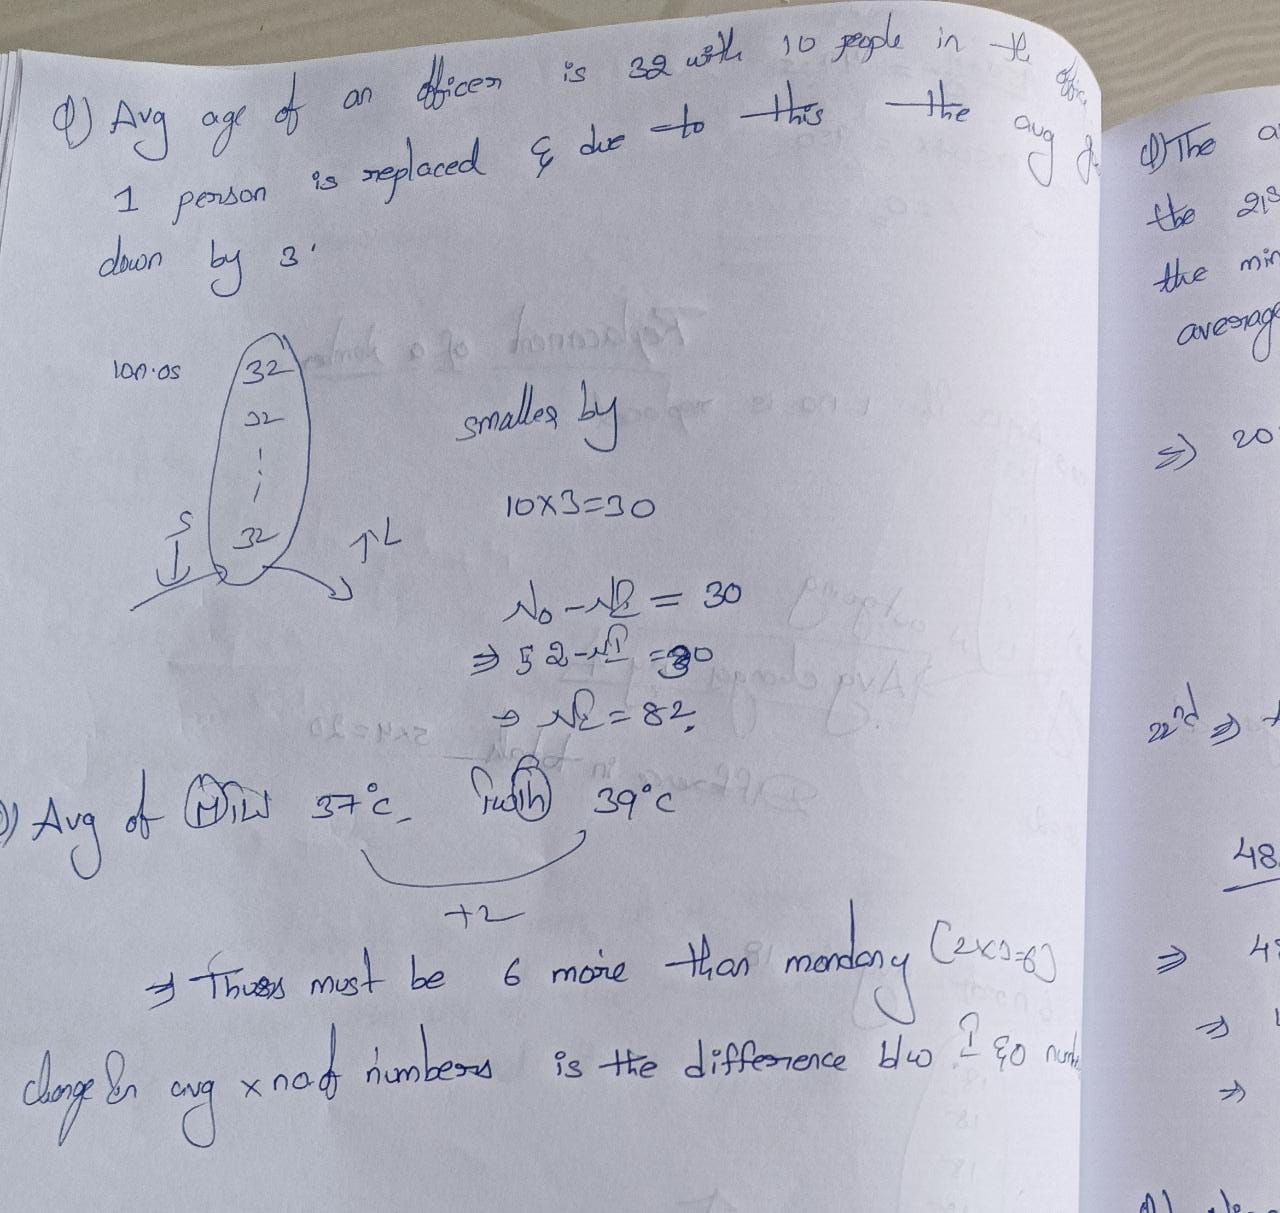 Q) Avg age of an officer is 32 with 10 people in the
1 person is replaced & due to this the avg
down by 3'
10n.os
32
32
32
S
↑L
smaller by
10×3=30
No - NI = 30
⇒ 52-NI = 30
⇒ NI = 82.
Q) Avg of MTW 37°C TWTh 39°C
+2
⇒ Thurs must be 6 more than monday (2×3=6)
change in avg x no of numbers is the difference b/w I & O
Q) The
the 21s
the min
average
⇒ 20
22nd ⇒
48
⇒ 48
⇒
⇒